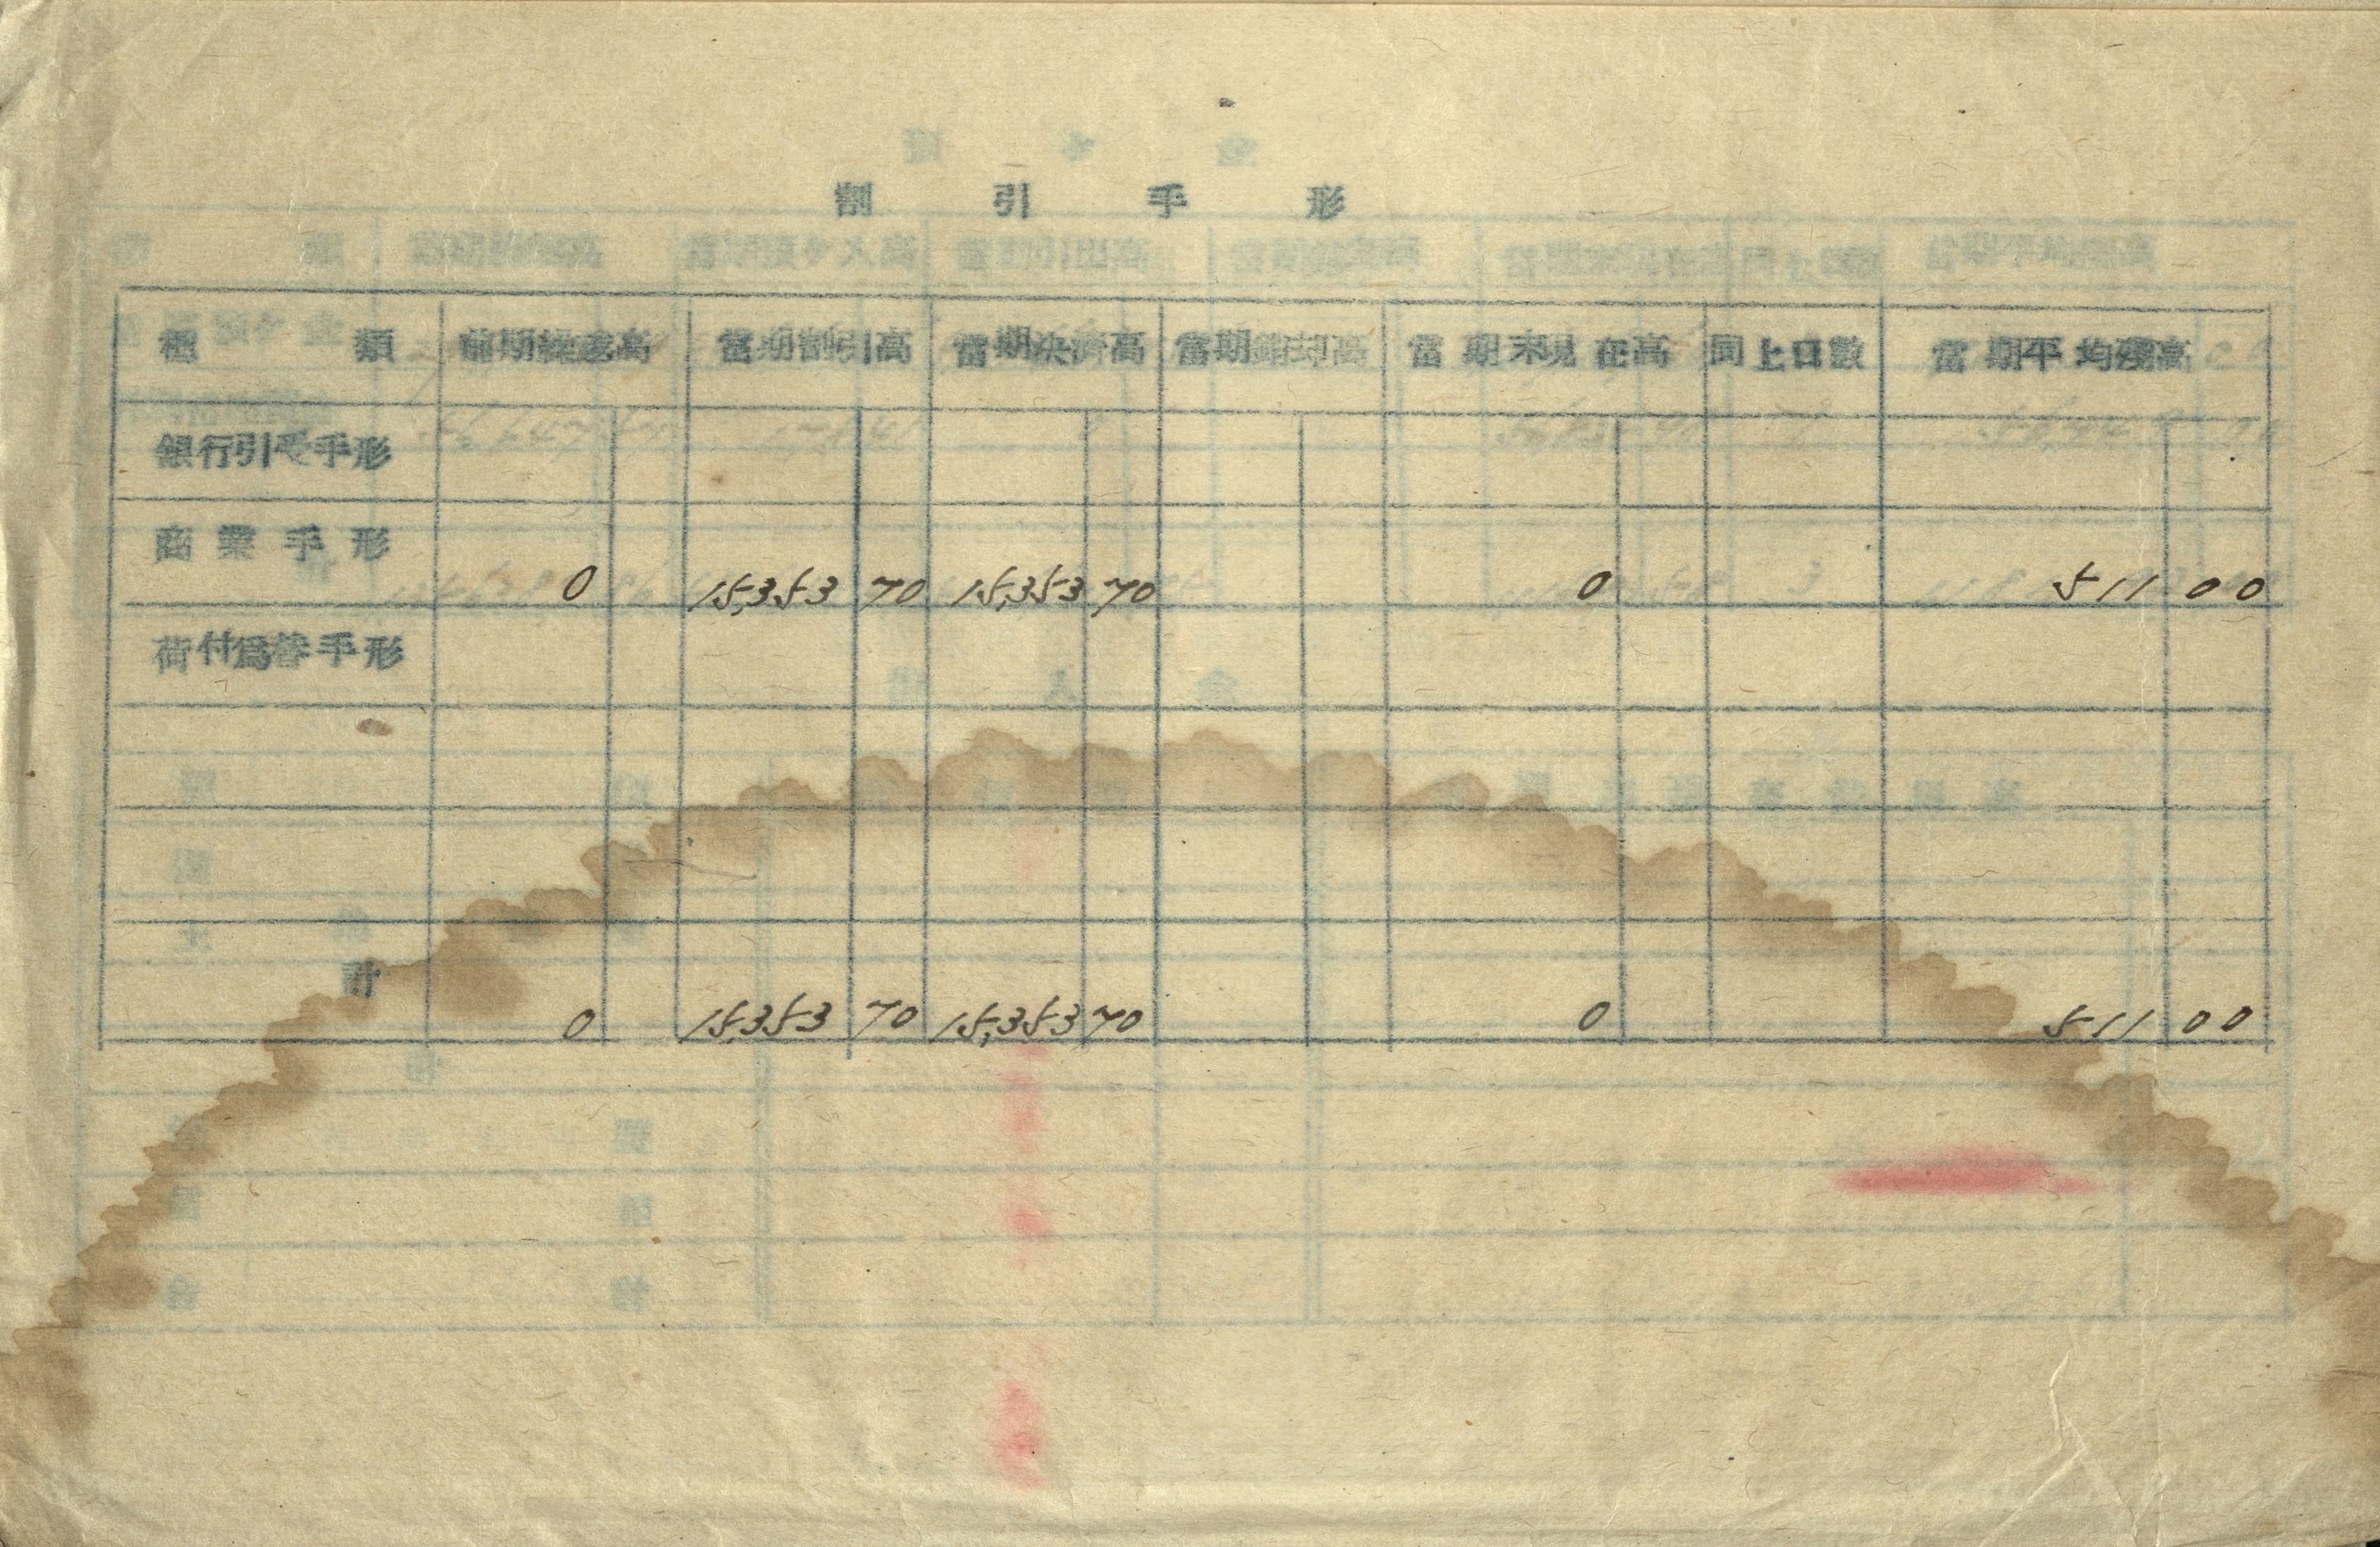 割引手形
種類 前期繰越高 當期割引高 當期決濟高 當期銷却高 當期末現在高 同上口數 當期平均殘高
銀行引受手形
商業手形 0 15,353 70 15,353 70 0 511 00
荷付爲替手形
計 0 15,353 70 15,353 70 0 511 00